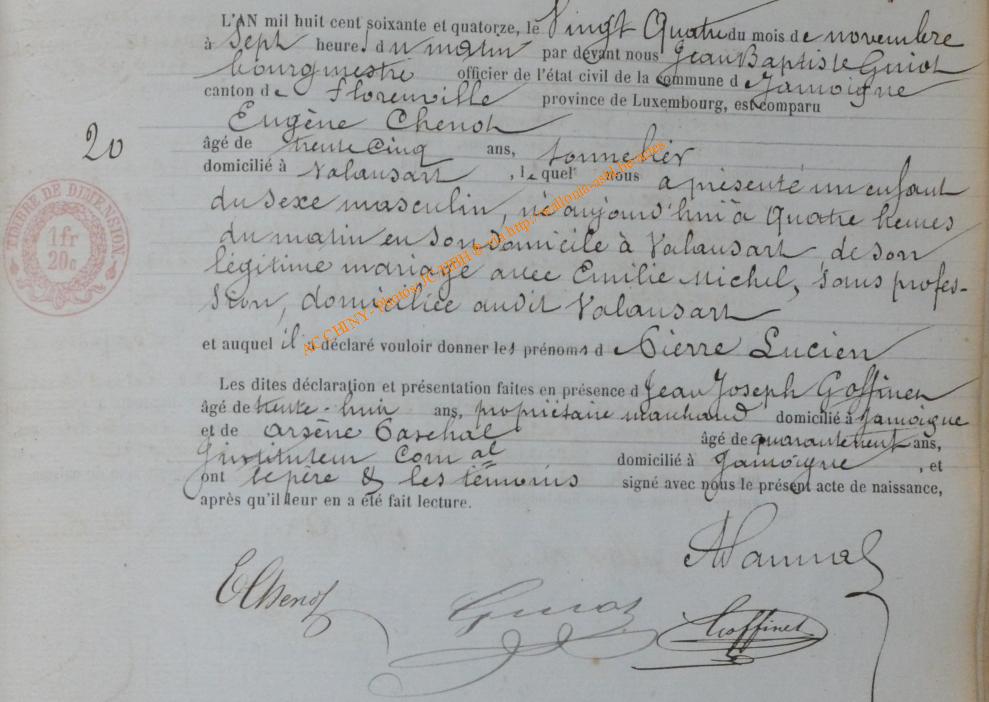 L'AN mil huit cent soixante et quatorze, le Vingt Quatre du mois de novembre
à Sept heures du matin par devant nous Jean Baptiste Guiot
bourgmestre officier de l'état civil de la commune d Jamoigne
canton de Florenville province de Luxembourg, est comparu
Eugène Chenot
20
âgé de trente cinq ans, tonnelier
domicilié à Valansart, lequel nous a présenté un enfant
du sexe masculin, né aujourd'hui à quatre heures
du matin en son domicile à Valansart de son
légitime mariage avec Emilie Michel, sans profes-
sion, domiciliée audit Valansart
et auquel il a déclaré vouloir donner les prénoms d Pierre Lucien
Les dites déclaration et présentation faites en présence d Jean Joseph Goffinet
âgé de trente-huit ans, propriétaire marchand domicilié à Jamoigne
et de Arsène Paschal âgé de quarante ans,
Instituteur Com al domicilié à Jamoigne, et
ont le père & les témoins signé avec nous le présent acte de naissance,
après qu'il leur en a été fait lecture.
EChenot
Guiot
Goffinet
TIMBRE DE DIMENSION
1 fr
20 c